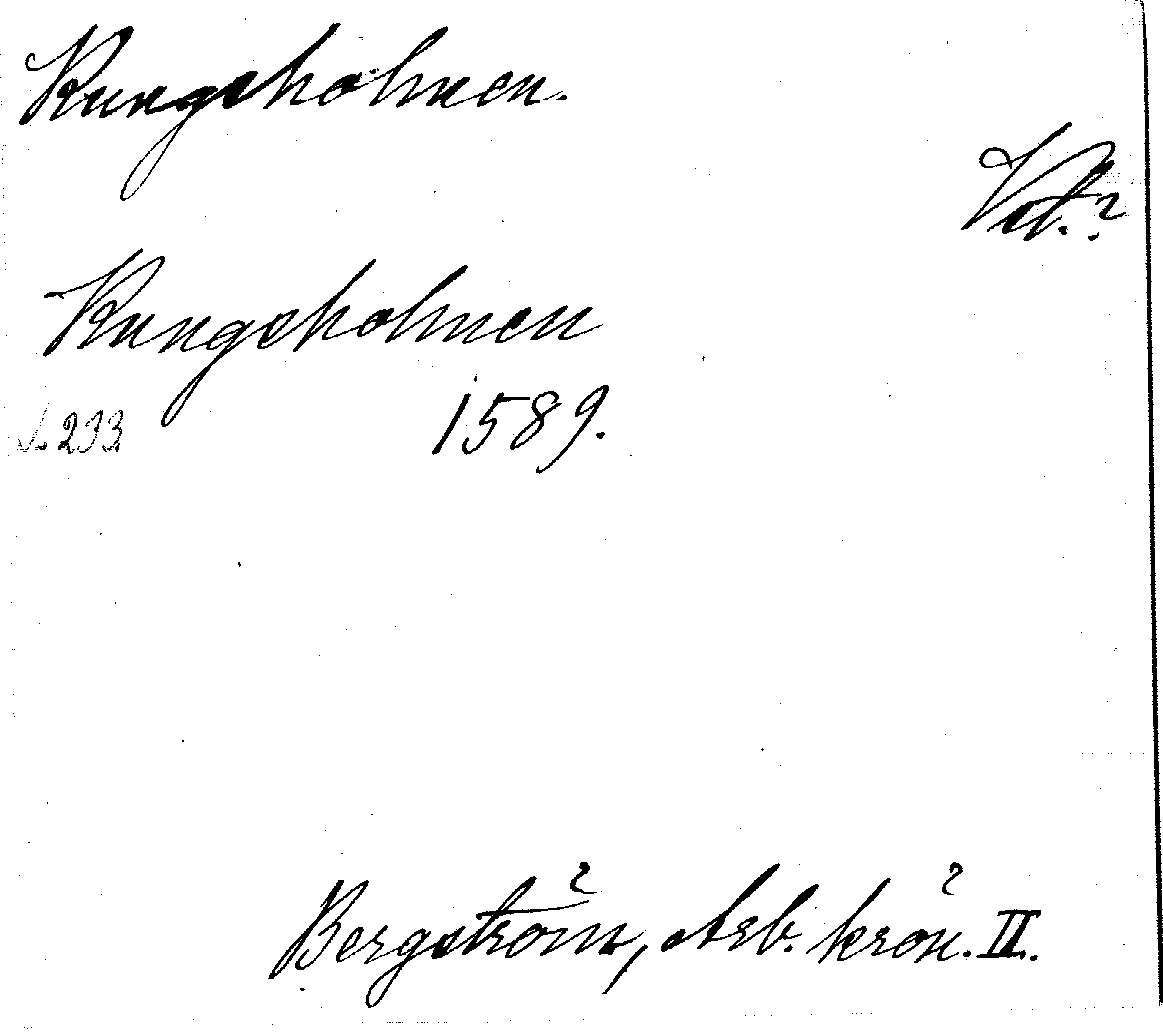 Kungsholmen.
Vst.?
Kungsholmen
s. 233 1589.
Bergström, Arb. krön. II.